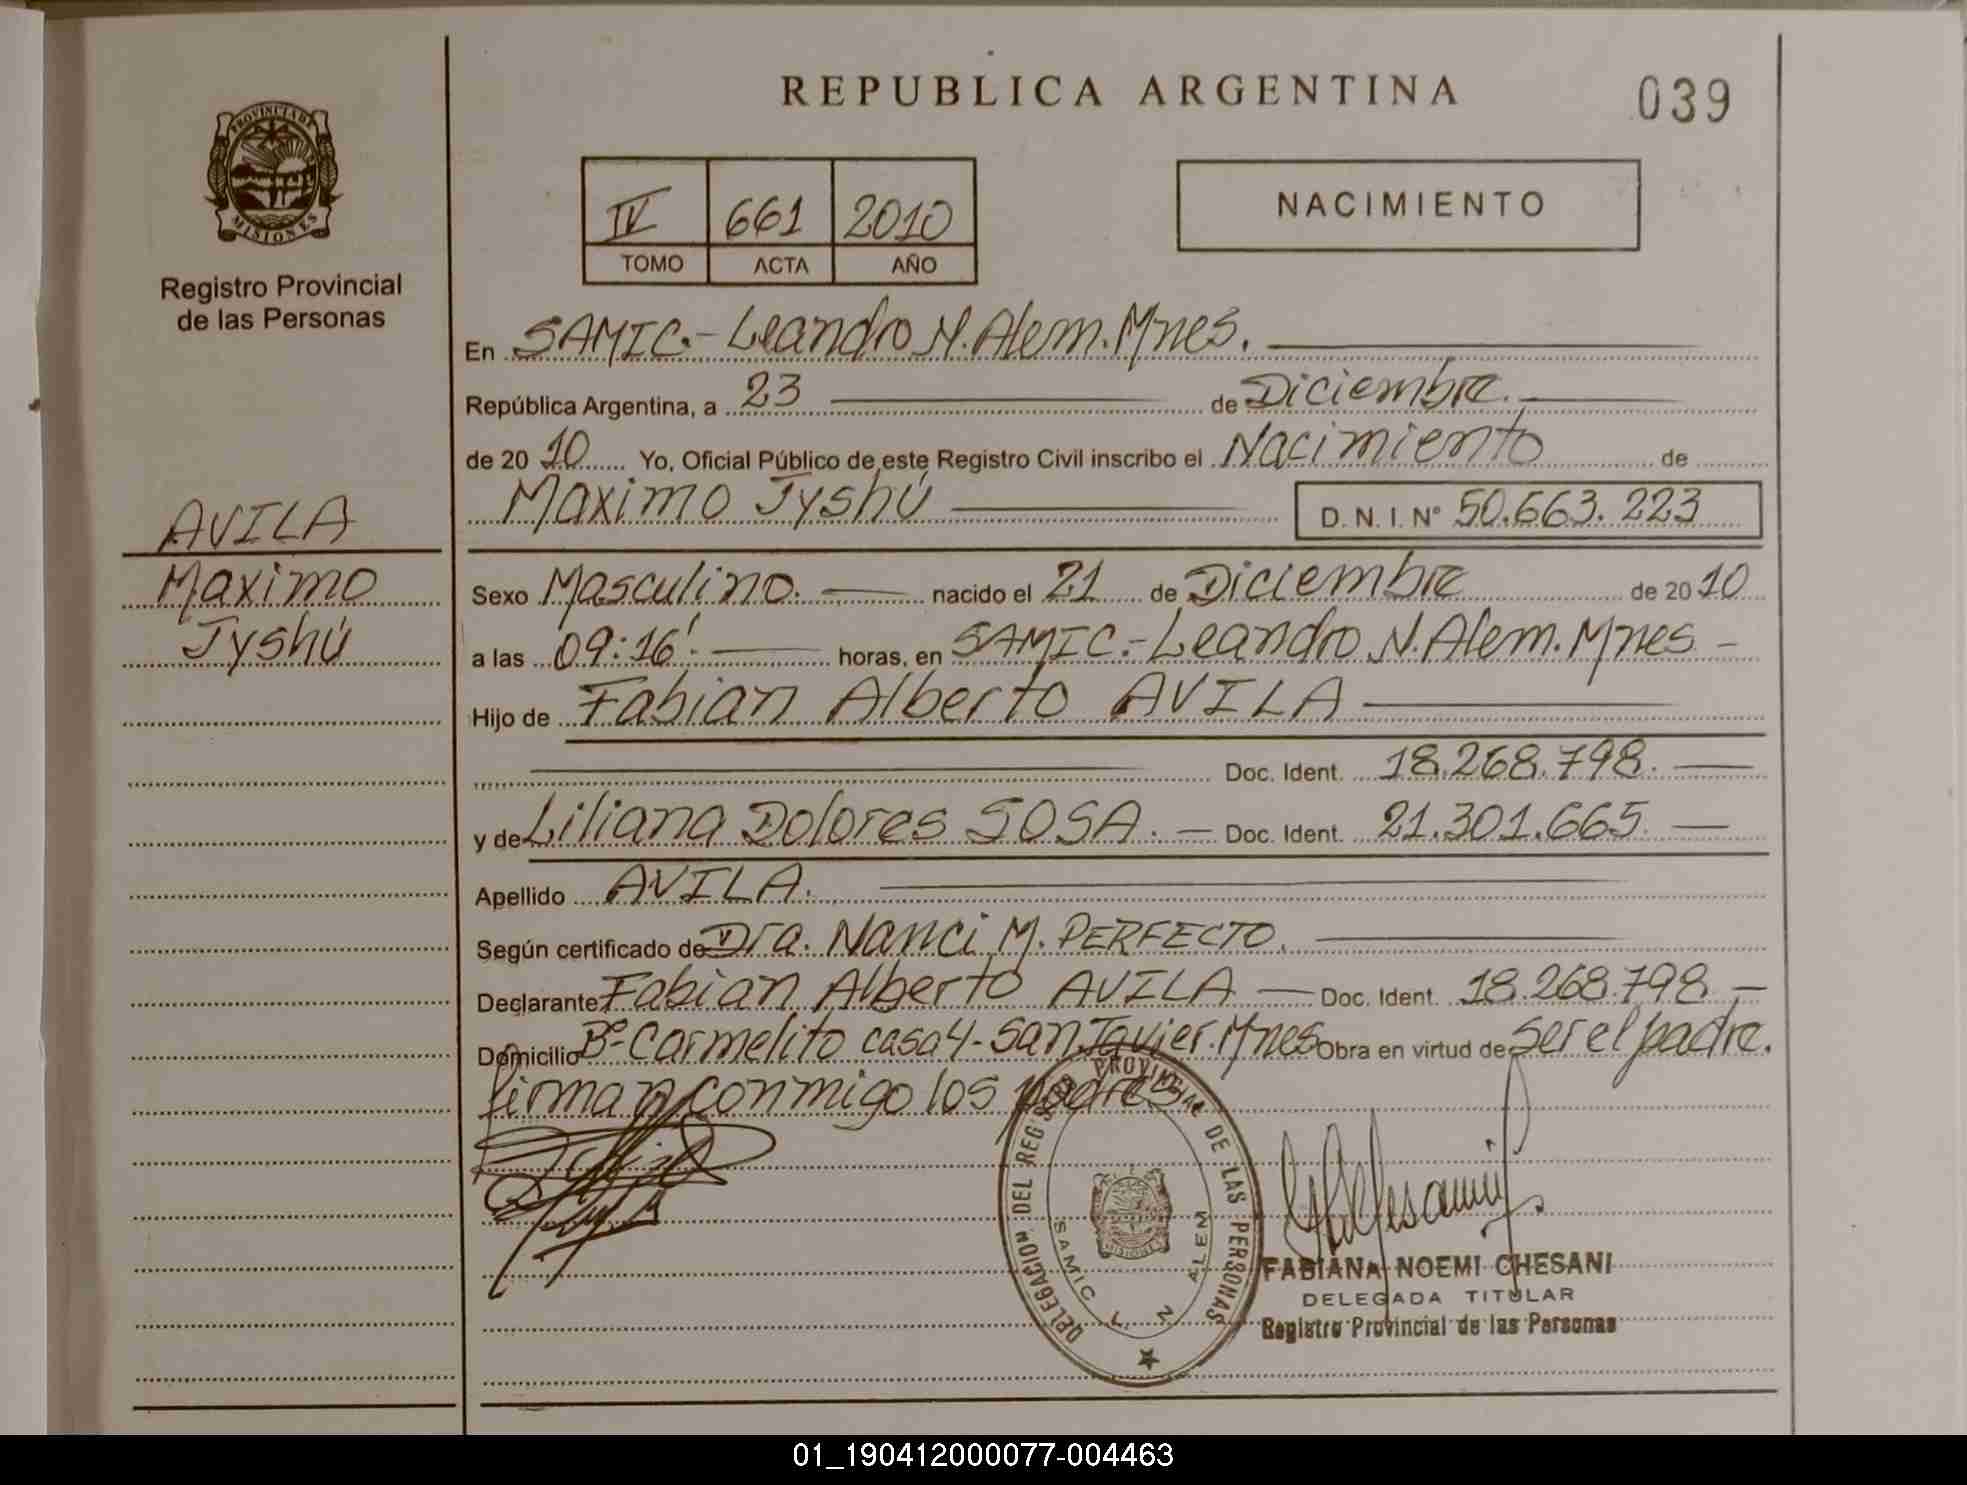 REPUBLICA ARGENTINA
039
PROVINCIA DE
MISIONES
Registro Provincial
de las Personas
IV 661 2010
TOMO ACTA AÑO
NACIMIENTO
En SAMIC.- Leandro N. Alem. Mnes.
República Argentina, a 23 de Diciembre.
de 2010 Yo, Oficial Público de este Registro Civil inscribo el Nacimiento de
Maximo Jyshú D. N. I. N° 50.663.223
AVILA
Maximo
Jyshú
Sexo Masculino. nacido el 21 de Diciembre de 2010
a las 09:16'. horas, en SAMIC.- Leandro N. Alem. Mnes -
Hijo de Fabian Alberto AVILA
Doc. Ident. 18.268.798.
y de Liliana Dolores SOSA. - Doc. Ident. 21.301.665
Apellido AVILA.
Según certificado de Dra. Nanci M. PERFECTO.
Declarante Fabian Alberto AVILA - Doc. Ident. 18.268.798 -
Domicilio B°- Carmelito casa 4- San Javier. Mnes Obra en virtud de Ser el padre.
firman conmigo los padres
DELEGACION DEL REGISTRO PROVINCIAL DE LAS PERSONAS
SAMIC L. N. ALEM
MISIONES
FABIANA NOEMI CHESANI
DELEGADA TITULAR
Registro Provincial de las Personas
01_190412000077-004463